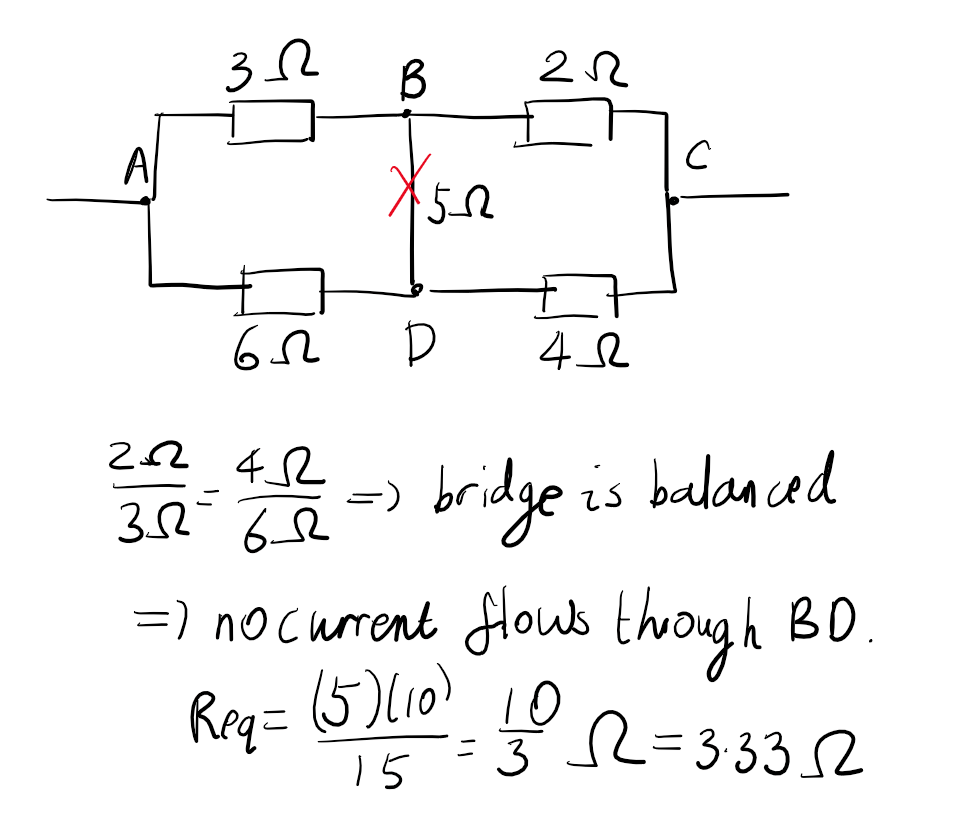 3Ω B 2Ω
A C
5Ω
6Ω D 4Ω
2Ω/3Ω = 4Ω/6Ω => bridge is balanced
=> no current flows through BD.
Req = (5)(10)/15 = 10/3 Ω = 3.33 Ω